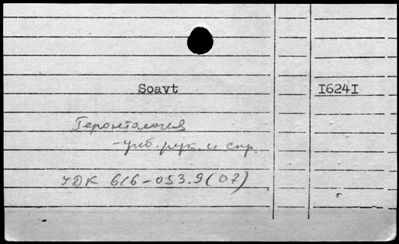 Soavt I624I
Геронтология
- учеб. рук. и спр.
УДК 616-053.9(07)